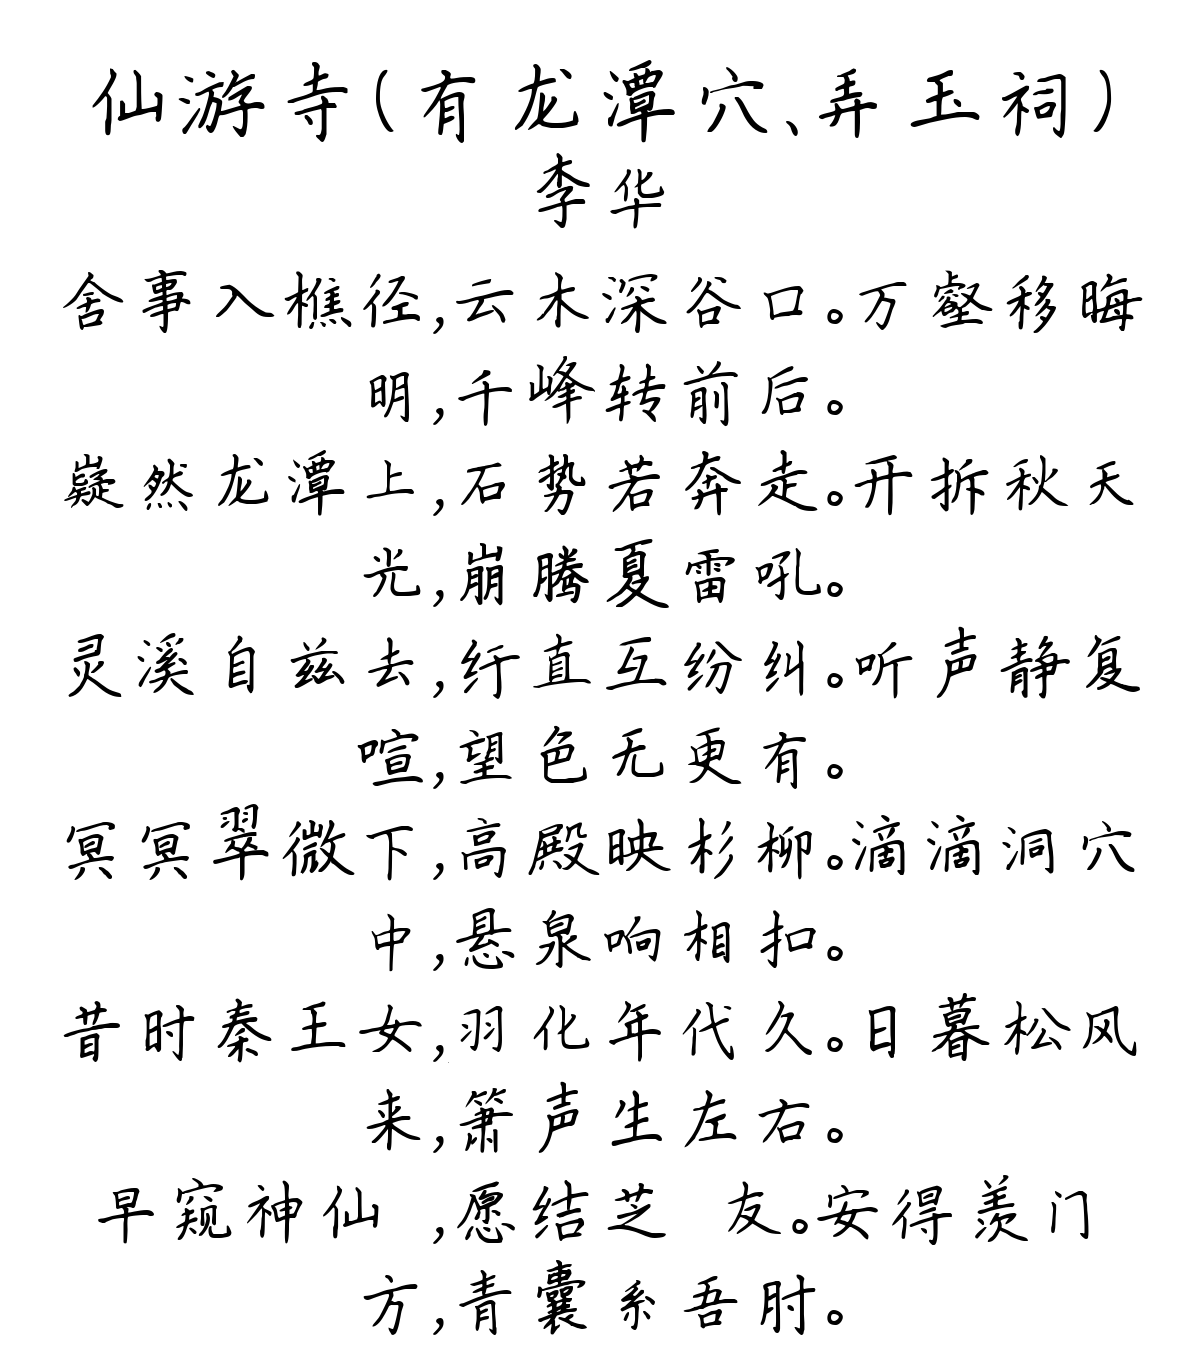 仙游寺(有龙潭穴、弄玉祠)
李华
舍事入樵径,云木深谷口。万壑移晦
明,千峰转前后。
嶷然龙潭上,石势若奔走。开拆秋天
光,崩腾夏雷吼。
灵溪自兹去,纡直互纷纠。听声静复
喧,望色无更有。
冥冥翠微下,高殿映杉柳。滴滴洞穴
中,悬泉响相扣。
昔时秦王女,羽化年代久。日暮松风
来,箫声生左右。
早窥神仙 ,愿结芝 友。安得羡门
方,青囊系吾肘。